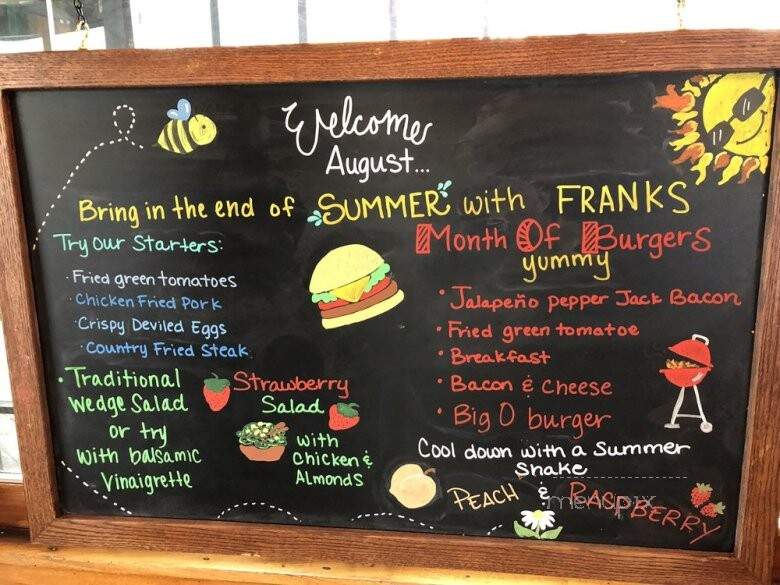 Welcome
August...
Bring in the end of SUMMER with FRANKS
Try Our Starters:
· Fried green tomatoes
· Chicken Fried Pork
· Crispy Deviled Eggs
· Country Fried Steak
· Traditional
Wedge Salad
or try
with balsamic
Vinaigrette
Strawberry
Salad
with
Chicken &
Almonds
Month Of Burgers
yummy
· Jalapeño pepper Jack Bacon
· Fried green tomatoe
· Breakfast
· Bacon & Cheese
· Big O burger
Cool down with a Summer
Shake
PEACH & RASPBERRY
menupix